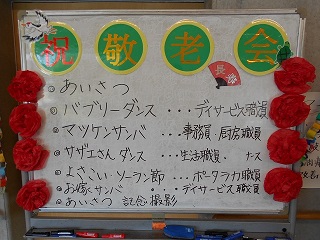 祝敬老会
長寿
◎あいさつ
◎バブリーダンス・・・デイサービス職員
◎マツケンサンバ・・・事務員・厨房職員
◎サザエさんダンス・・・生活職員・ナース
◎よさこいソーラン節・・・ポータラカ職員
◎お嫁サンバ・・・デイサービス職員
◎あいさつ 記念撮影